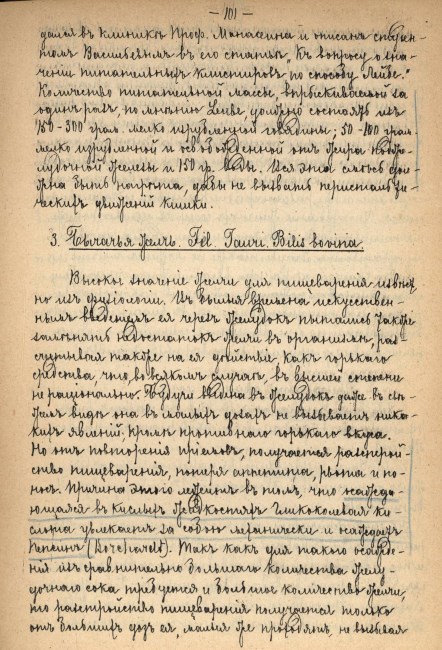 — 101 —
дался въ клиникѣ Проф. Манасеина и описанъ студен-
томъ Васильевымъ въ его статьѣ „Къ вопросу о зна-
ченіи питательныхъ клистировъ по способу Лейбе."
Количество питательной массы, впрыскиваемой за
одинъ разъ, по мнѣнію Leube, должно состоять изъ
150-300 грам. мелко изрубленной говядины; 50-100 грам.
мелко изрубленной и освобожденной отъ жира подже-
лудочной железы и 150 гр. воды. Вся эта смѣсь дол-
жна быть нагрѣта, дабы не вызвать перистальти-
ческихъ движеній кишки.
3. Бычачья желчь. Fel. Tauri. Bilis bovina.
Высокое значеніе желчи для пищеваренія извѣст-
но изъ физіологіи. Въ былыя времена искусствен-
нымъ введеніемъ ея черезъ желудокъ пытались также
замѣнять недостатокъ желчи въ организмѣ, раз-
считывая также на ея дѣйствіе, какъ горькаго
средства, что, во всякомъ случаѣ, въ высшей степени
не раціонально. Будучи введена въ желудокъ даже въ свѣ-
жемъ видѣ она въ малыхъ дозахъ не вызываетъ ника-
кихъ явленій, кромѣ противнаго горькаго вкуса.
Но отъ повторенія пріемовъ, получается разстрой-
ство пищеваренія, потеря аппетита, рвота и по-
носъ. Причина этого лежитъ въ томъ, что осажда-
ющаяся въ кислыхъ жидкостяхъ гликохолевая ки-
слота увлекаетъ за собою механически и осаждаетъ
пепсинъ (Borchardt). Такъ какъ для такого осажде-
нія изъ сравнительно большаго количества желу-
дочнаго сока требуется и большое количество желчи,
то разстройство пищеваренія получается только
отъ большихъ дозъ ея, малыя же проходятъ, не вызывая